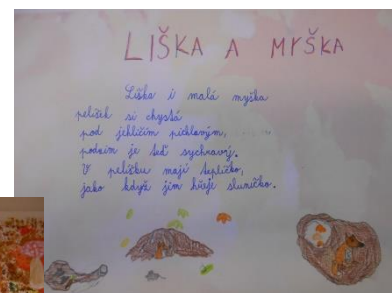 LIŠKA A MYŠKA
Liška i malá myška
pelíšek si chystá
pod jehličím pichlavým,
podzim je teď sychravý.
V pelíšku mají teplíčko,
jako když jim hřeje sluníčko.